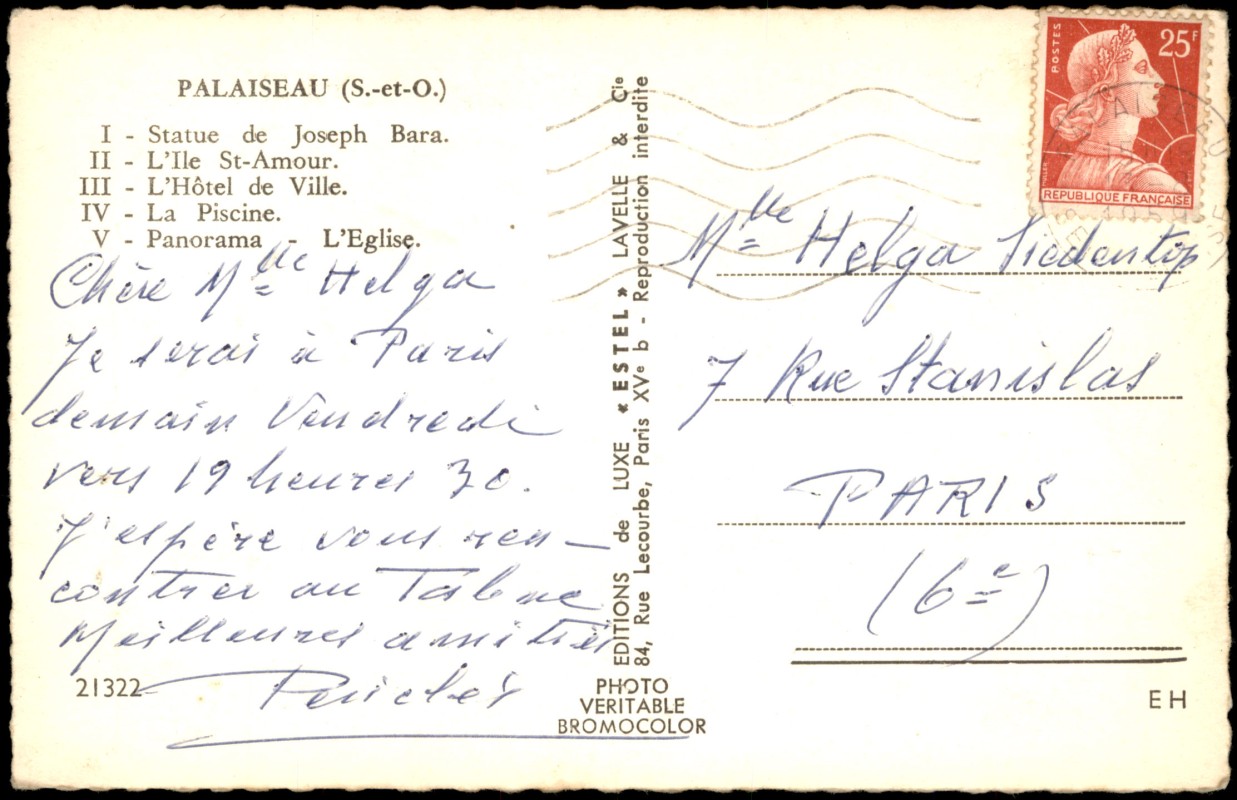 PALAISEAU (S.-et-O.)
I - Statue de Joseph Bara.
II - L'Ile St-Amour.
III - L'Hôtel de Ville.
IV - La Piscine.
V - Panorama - L'Eglise.
Chère Mlle Helga
Je serai à Paris
demain Vendredi
vers 19 heures 30.
J'espère vous ren-
contrer au
Meilleures amitiés
Periclès
21322
EDITIONS de LUXE « ESTEL » LAVELLE & Cie
84, Rue Lecourbe, Paris XVe b - Reproduction interdite
PHOTO
VERITABLE
BROMOCOLOR
POSTES
25F
MULLER
REPUBLIQUE FRANÇAISE
Mlle Helga
7 Rue Stanislas
PARIS
(6e)
EH